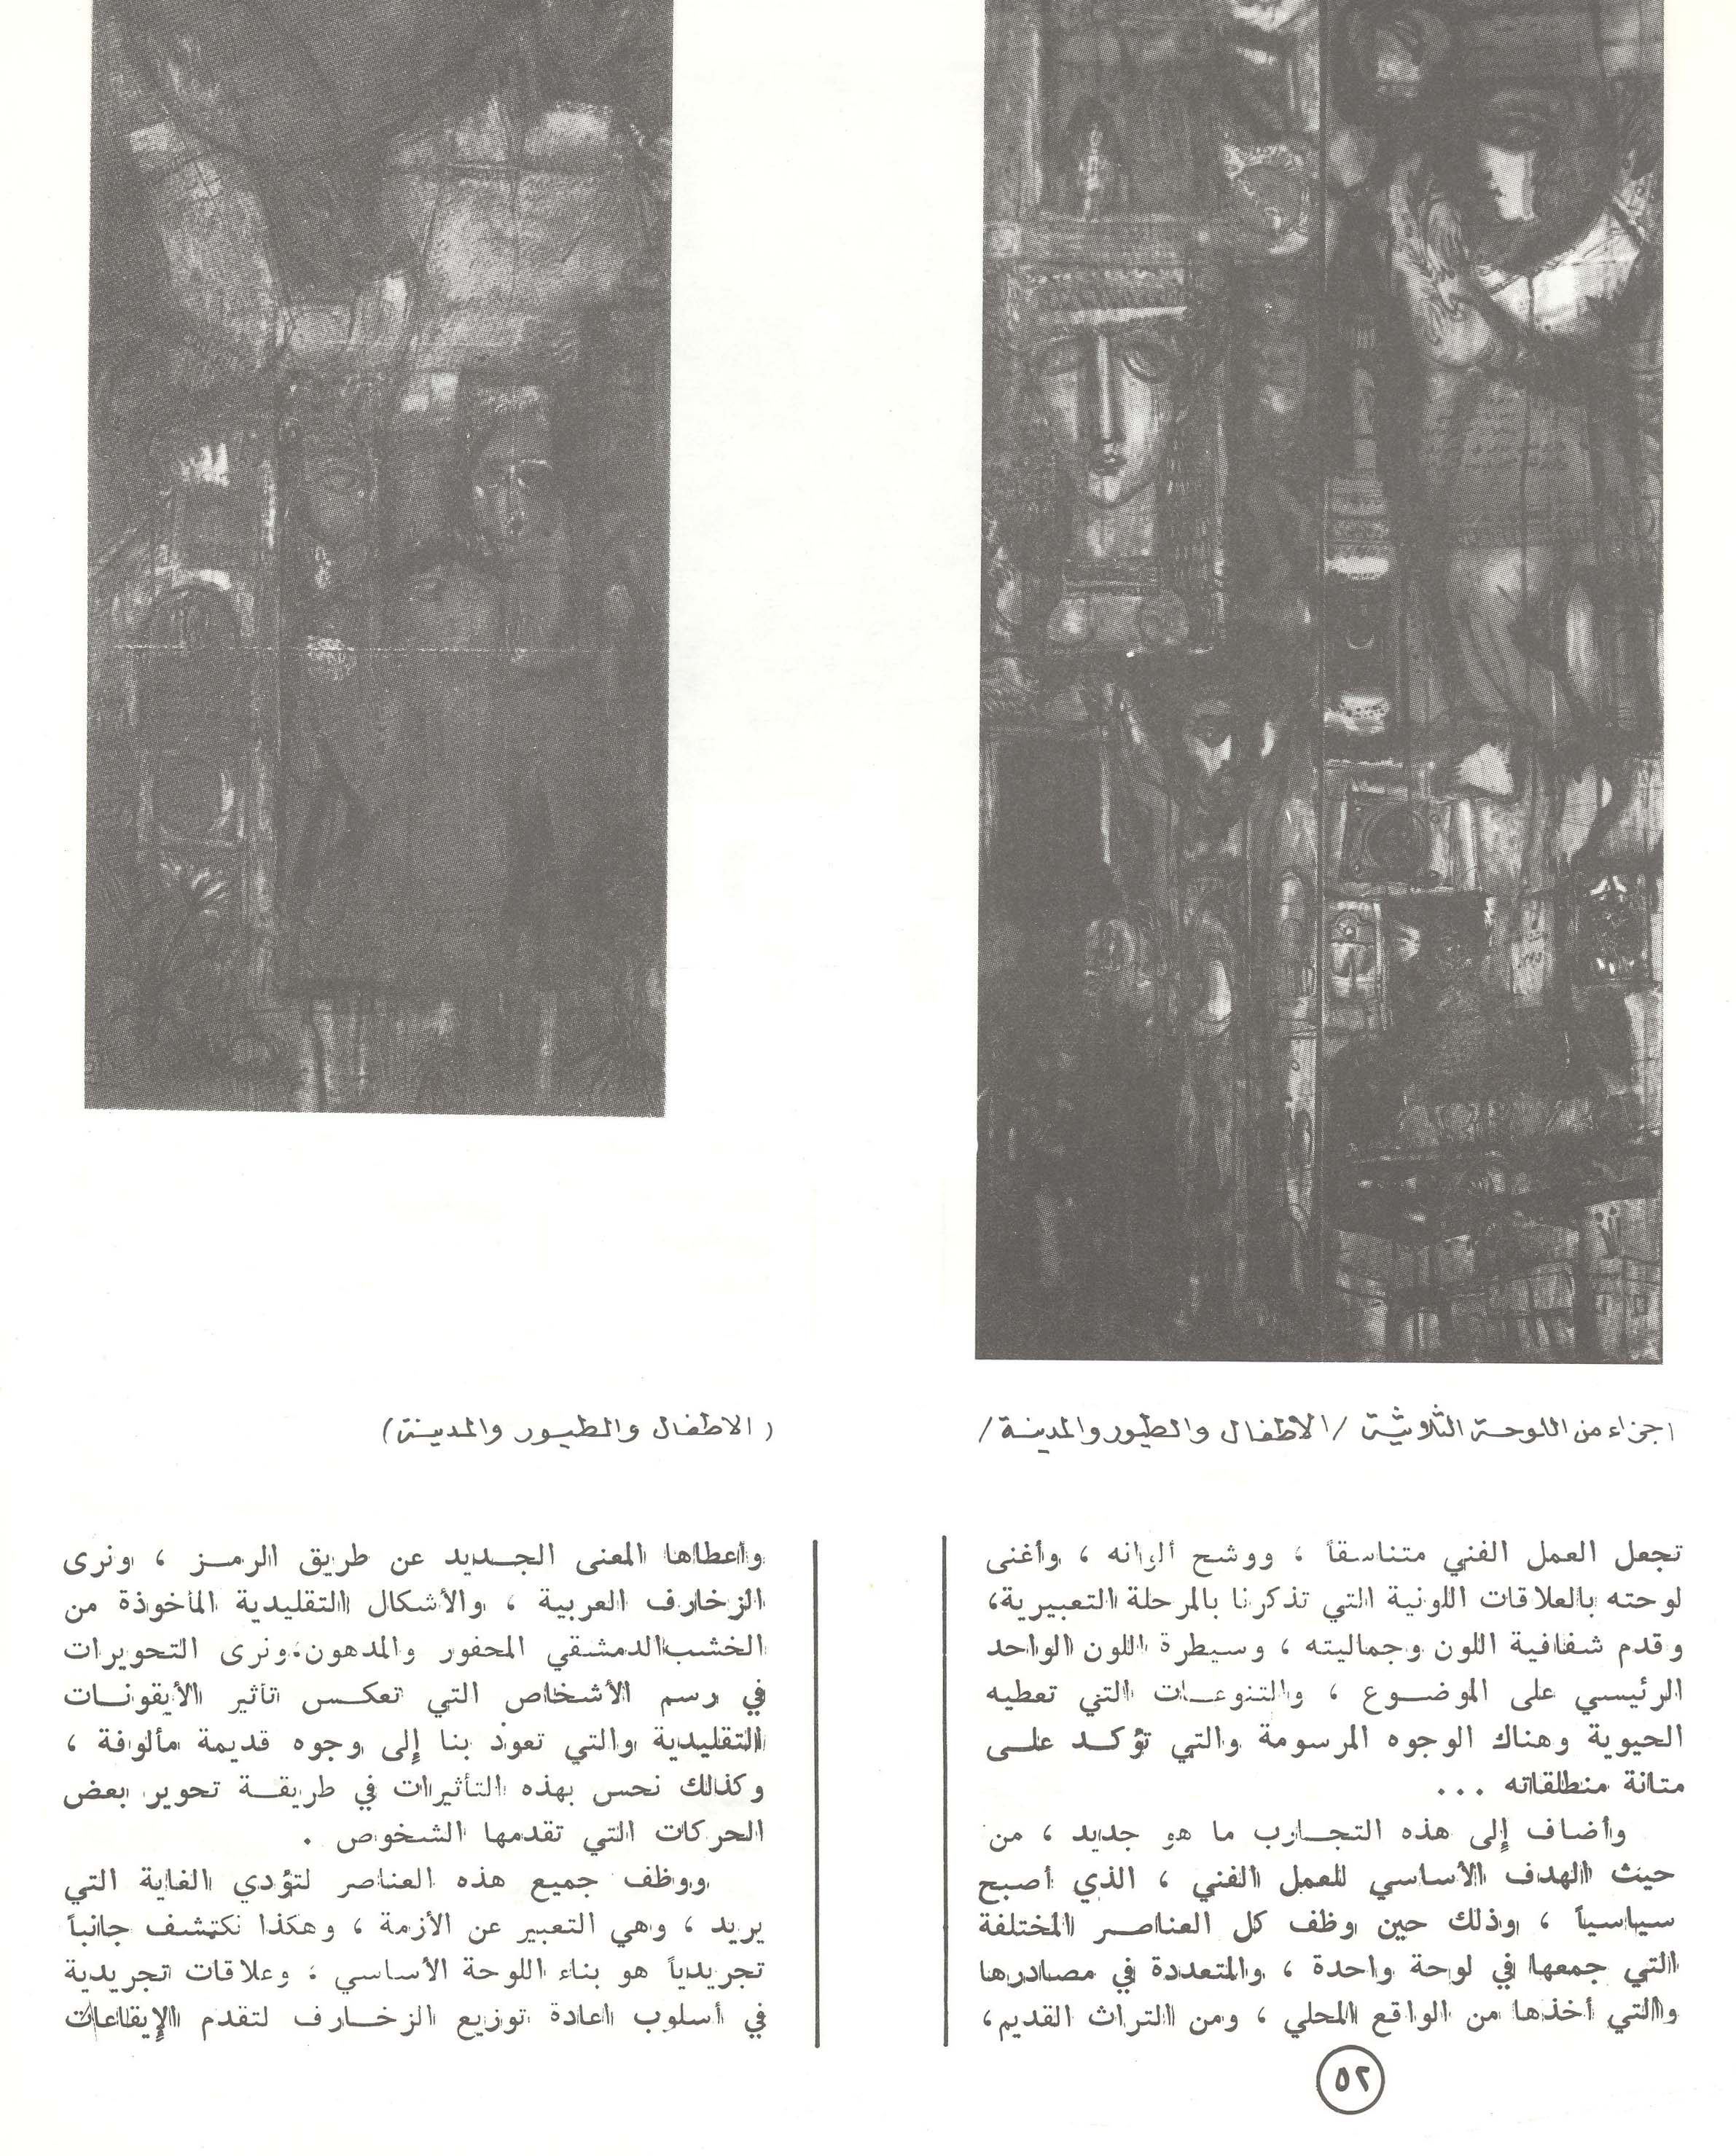 اجزاء من اللوحة الثلاثية /الاطفال والطيور والمدينة/
(الاطفال والطيور والمدينة)
تجعل العمل الفني متناسقاً ، ووشح ألوانه ، وأغنى
لوحته بالعلاقات اللونية التي تذكرنا بالمرحلة التعبيرية،
وقدم شفافية اللون وجماليته ، وسيطرة اللون الواحد
الرئيسي على الموضوع ، والتنوعات التي تعطيه
الحيوية وهناك الوجوه المرسومة والتي تؤكد على
متانة منطلقاته ...
وأضاف إلى هذه التجارب ما هو جديد ، من
حيث الهدف الأساسي للعمل الفني ، الذي أصبح
سياسياً ، وذلك حين وظف كل العناصر المختلفة
التي جمعها في لوحة واحدة ، والمتعددة في مصادرها
والتي أخذها من الواقع المحلي ، ومن التراث القديم،
وأعطاها المعنى الجديد عن طريق الرمز ، ونرى
الزخارف العربية ، والأشكال التقليدية المأخوذة من
الخشب الدمشقي المحفور والمدهون، ونرى التحويرات
في رسم الأشخاص التي تعكس تأثير الأيقونات
التقليدية والتي تعود بنا إلى وجوه قديمة مألوفة ،
وكذلك نحس بهذه التأثيرات في طريقة تحوير بعض
الحركات التي تقدمها الشخوص .
ووظف جميع هذه العناصر لتؤدي الغاية التي
يريد ، وهي التعبير عن الأزمة ، وهكذا نكتشف جانباً
تجريدياً هو بناء اللوحة الأساسي ، وعلاقات تجريدية
في أسلوب اعادة توزيع الزخارف لتقدم الإيقاعات
٥٢